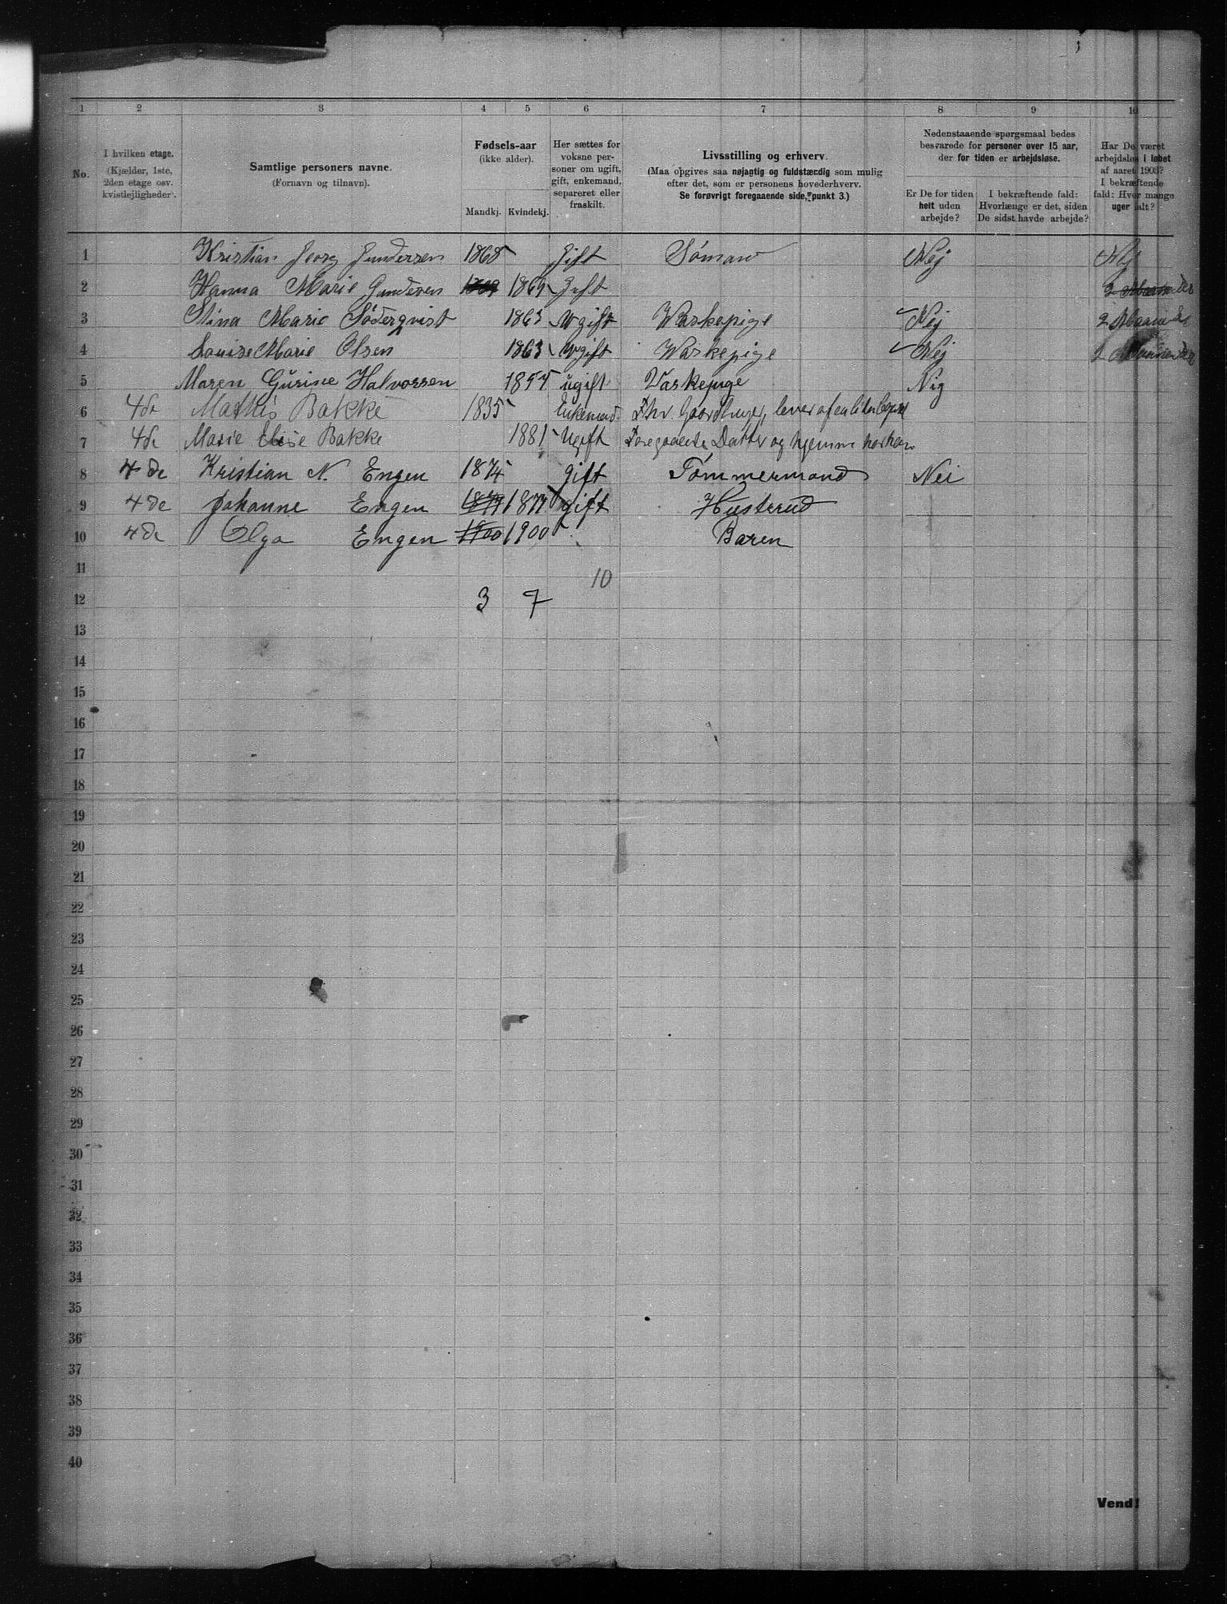 1 2 3 4 5 6 7 8 9 10
No.
I hvilken etage.
(Kjælder, 1ste,
2den etage osv.
kvistlejligheder).
Samtlige personers navne.
(Fornavn og tilnavn).
Fødsels-aar
(ikke alder).
Mandkj. Kvindekj.
Her sættes for
voksne per-
soner om ugift,
gift, enkemand,
separeret eller
fraskilt.
Livsstilling og erhverv.
(Maa opgives saa nøjagtig og fuldstændig som mulig
efter det, som er personens hovederhverv.
Se forøvrigt foregaaende side, punkt 3.)
Nedenstaaende spørgsmaal bedes
besvarede for personer over 15 aar,
der for tiden er arbejdsløse.
Er De for tiden
helt uden
arbejde?
I bekræftende fald:
Hvorlænge er det, siden
De sidst havde arbejde?
Har De været
arbejdsløs i løbet
af aaret 1903?
I bekræftende
fald: Hvor mange
uger ialt?
1 Kristian Georg Gundersen 1868 Gift Sömand Nej Nej
2 Hanna Marie Gundersen 1869 Gift
3 Stina Marie Söderqvist 1863 Ugift Waskepige Nej 2 Maaneder
4 Louise Marie Olsen 1863 Ugift Waskepige Nej 2 Maaneder
5 Maren Gurine Halvorsen 1857 ugift Vaskepige Nig
6 4de Mathis Bakke 1835 Enkemand Fhv. Gaardbruger, lever af en liten
7 4de Marie Elise Bakke 1881 Ugift Foregaaende Datter og hjemme hos ham
8 4de Kristian N. Engen 1874 gift Tömmermand Nei
9 4de Johanne Engen 1877 gift Hustrud
10 4de Olga Engen 1900 1900 Baren
11
10
12 3 7
13
14
15
16
17
18
19
20
21
22
23
24
25
26
27
28
29
30
31
32
33
34
35
36
37
38
39
40
Vend!